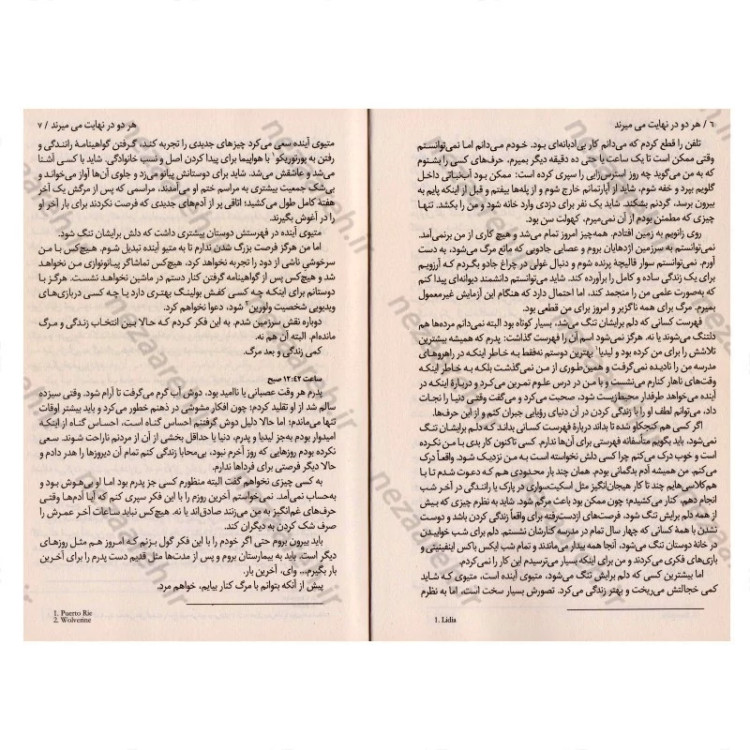 ٦ / هر دو در نهایت می میرند
تلفن را قطع کردم که می‌دانم کار بی‌ادبانه‌ای بود. خودم می‌دانم اما نمی‌توانستم
وقتی ممکن است تا یک ساعت یا حتی ده دقیقه دیگر بمیرم، حرف‌های کسی را بشنوم
که به من می‌گوید چه روز استرس‌زایی را سپری کرده است. ممکن بود آب‌نباتی داخل
گلویم بپرد و خفه شوم، شاید از آپارتمانم خارج شوم و از پله‌ها بیفتم و قبل از اینکه پایم به
بیرون برسد، گردنم بشکند. شاید یک نفر برای دزدی وارد خانه شود و من را بکشد. تنها
چیزی که مطمئنن بودم از آن نمی‌میرم، کهولت سن بود.
روی زانویم به زمین افتادم. همه‌چیز امروز تمام می‌شد و هیچ کاری از من برنمی‌آمد.
نمی‌توانستم به سرزمین اژدهایان بروم و عصایی جادویی که مانع مرگ می‌شود، به دست
آورم. نمی‌توانستم سوار قالیچهٔ پرنده شوم و دنبال غولی در چراغ جادو بگردم که آرزویم
برای یک زندگی ساده و کامل را برآورده کند. شاید می‌توانستم دانشمند دیوانه‌ای پیدا کنم
که به‌صورت علمی من را منجمد کند، اما احتمال دارد که هنگام این آزمایش غیرمعمول
بمیرم. مرگ برای همه ناگزیر و امروز برای من قطعی بود.
فهرست کسانی که دلم برایشان تنگ می‌شد، بسیار کوتاه بود البته نمی‌دانم مرده‌ها هم
دلتنگ می‌شوند یا نه. هرگز نمی‌شود اسم آن را فهرست گذاشت: پدرم که همیشه بیشترین
تلاشش را برای من کرده بود و لیدیا¹ بهترین دوستم نه‌فقط به خاطر اینکه در راهروهای
مدرسه من را نادیده نمی‌گرفت و همین‌طوری از من نمی‌گذشت بلکه به خاطر اینکه
وقت‌های ناهار کنارم می‌نشست و با من در درس علوم تمرین می‌کرد و دربارهٔ اینکه در
آینده می‌خواهد طرفدار محیط‌زیست شود، صحبت می‌کرد و می‌گفت وقتی دنیا را نجات
داد، می‌توانم لطف او را با زندگی کردن در آن دنیای رؤیایی جبران کنم و از این حرف‌ها.
اگر کسی هم کنجکاو شده تا بداند دربارهٔ فهرست کسانی بداند که دلم برایشان تنگ
نمی‌شود، باید بگویم متأسفانه فهرستی برای آن‌ها ندارم. کسی تاکنون کار بدی با من نکرده
است و خوب درک می‌کنم چرا کسی دلش نخواسته است به من نزدیک شود. واقعاً درک
می‌کنم. من همیشه آدم بدگمانی بودم. همان چند بار محدودی هم که دعوت شدم تا با
هم‌کلاسی‌هایم چند تا کار هیجان‌انگیز مثل اسکیت‌سواری در پارک یا رانندگی در آخر شب
انجام دهم، کنار می‌کشیدم؛ چون ممکن بود باعث مرگم شود. شاید به نظرم چیزی که بیش
از همه دلم برایش تنگ شود، فرصت‌های ازدست‌رفته برای واقعاً زندگی کردن باشد و دوست
نشدن با همهٔ کسانی که چهار سال تمام در مدرسه کنارشان نشستم. دلم برای شب خوابیدن
در خانهٔ دوستان تنگ می‌شود، آنجا همه بیدار می‌مانند و تمام شب ایکس باکس اینفینیتی و
بازی‌های فکری می‌کردند و من برای اینکه بسیار می‌ترسیدم این کار را نمی‌کردم.
اما بیشترین کسی که دلم برایش تنگ می‌شود، متیوی آینده است، متیوی که شاید
کمی خجالتش می‌ریخت و بهتر زندگی می‌کرد. تصورش بسیار سخت است، اما به نظرم
1. Lidia
هر دو در نهایت می میرند / ٧
متیوی آینده سعی می‌کرد چیزهای جدیدی را تجربه کند، گرفتن گواهینامهٔ رانندگی و
رفتن به پورتوریکو¹ با هواپیما برای پیدا کردن اصل و نسب خانوادگی. شاید با کسی آشنا
می‌شد و عاشقش می‌شد. شاید برای دوستانش پیانو می‌زد و جلوی آن‌ها آواز می‌خواند و
بی‌شک جمعیت بیشتری به مراسم ختم او می‌آمدند، مراسمی که پس از مرگش یک آخر
هفتهٔ کامل طول می‌کشید؛ اتاقی پر از آدم‌های جدیدی که فرصت نکردند برای بار آخر او
را در آغوش بگیرند.
متیوی آینده در فهرستش دوستان بیشتری داشت که دلش برایشان تنگ شود.
اما من هرگز فرصت بزرگ شدن ندارم تا به متیو آینده تبدیل شوم. هیچ‌کس با من
سرخوشی ناشی از دود را تجربه نخواهد کرد، هیچ‌کس تماشاگر پیانونوازی من نخواهد
شد و هیچ‌کس پس از گواهینامه گرفتن کنار دستم در ماشین نخواهد نشست. هرگز با
دوستانم برای اینکه چه کسی کفش بولینگ بهتری دارد یا چه کسی دربازی‌های
ویدیویی شخصیت ولورین² شود، دعوا نخواهم کرد.
دوباره نقش سرزمین شدم. به این فکر کردم که حالا بین انتخاب زندگی و مرگ
مانده‌ام. البته آن هم نه.
کمی زندگی و بعد مرگ.
ساعت ۱۲:۴۲ صبح
پدرم هر وقت عصبانی یا ناامید بود، دوش آب گرم می‌گرفت تا آرام شود. وقتی سیزده
سالم شد از او تقلید کردم؛ چون افکار مشوشی در ذهنم خطور می‌کرد و باید بیشتر اوقات
تنها می‌ماندم؛ اما حالا دلیل دوش گرفتنم احساس گناه است، احساس گناه از اینکه
امیدوار بودم به‌جز لیدیا و پدرم، دنیا یا حداقل بخشی از آن از مردنم ناراحت شوند. سعی
نکرده بودم روزهایی که روز آخرم نبود، بی‌محابا زندگی کنم تمام آن دیروزها را هدر دادم و
حالا دیگر فرصتی برای فرداها ندارم.
به کسی چیزی نخواهم گفت البته منظورم کسی جز پدرم بود اما او بی‌هوش بود و
به‌حساب نمی‌آمد. نمی‌خواستم آخرین روزم را با این فکر سپری کنم که آیا آدم‌ها وقتی
حرف‌های غم‌انگیز به من می‌زنند صادق‌اند یا نه. هیچ‌کس نباید ساعات آخر عمرش را
صرف شک کردن به دیگران کند.
باید بیرون بروم حتی اگر خودم را با این فکر گول بزنم که امروز هم مثل روزهای
دیگر است. باید به بیمارستان بروم و پس از مدت‌ها مثل قدیم دست پدرم را برای آخرین
بار بگیرم... وای، آخرین بار.
پیش از آنکه بتوانم با مرگ کنار بیایم، خواهم مرد.
1. Puerto Rie
2. Wolverine
nezaarsheh.ir